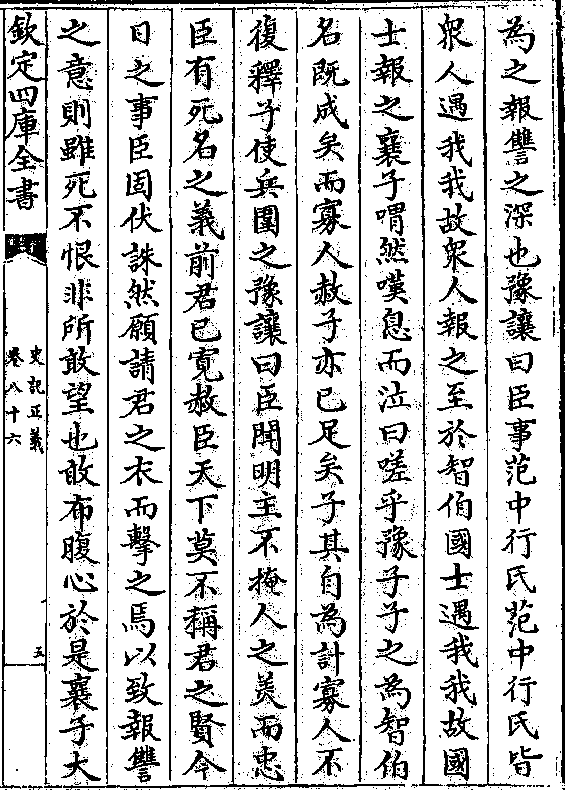 為之報讐之深也豫讓曰臣事范中行氏范中行氏皆
衆人遇我我故衆人報之至於智伯國士遇我我故國
士報之襄子喟然嘆息而泣曰嗟乎豫子子之為智伯
名既成矣而寡人赦子亦已足矣子其自為計寡人不
復釋子使兵圍之豫讓曰臣聞明主不掩人之美而忠
臣有死名之義前君已寛赦臣天下莫不稱君之賢今
日之事臣固伏誅然願請君之衣而擊之焉以致報讐
之意則雖死不恨非所敢望也敢布腹心於是襄子大
欽定四庫全書
史記正義
卷八十六
五